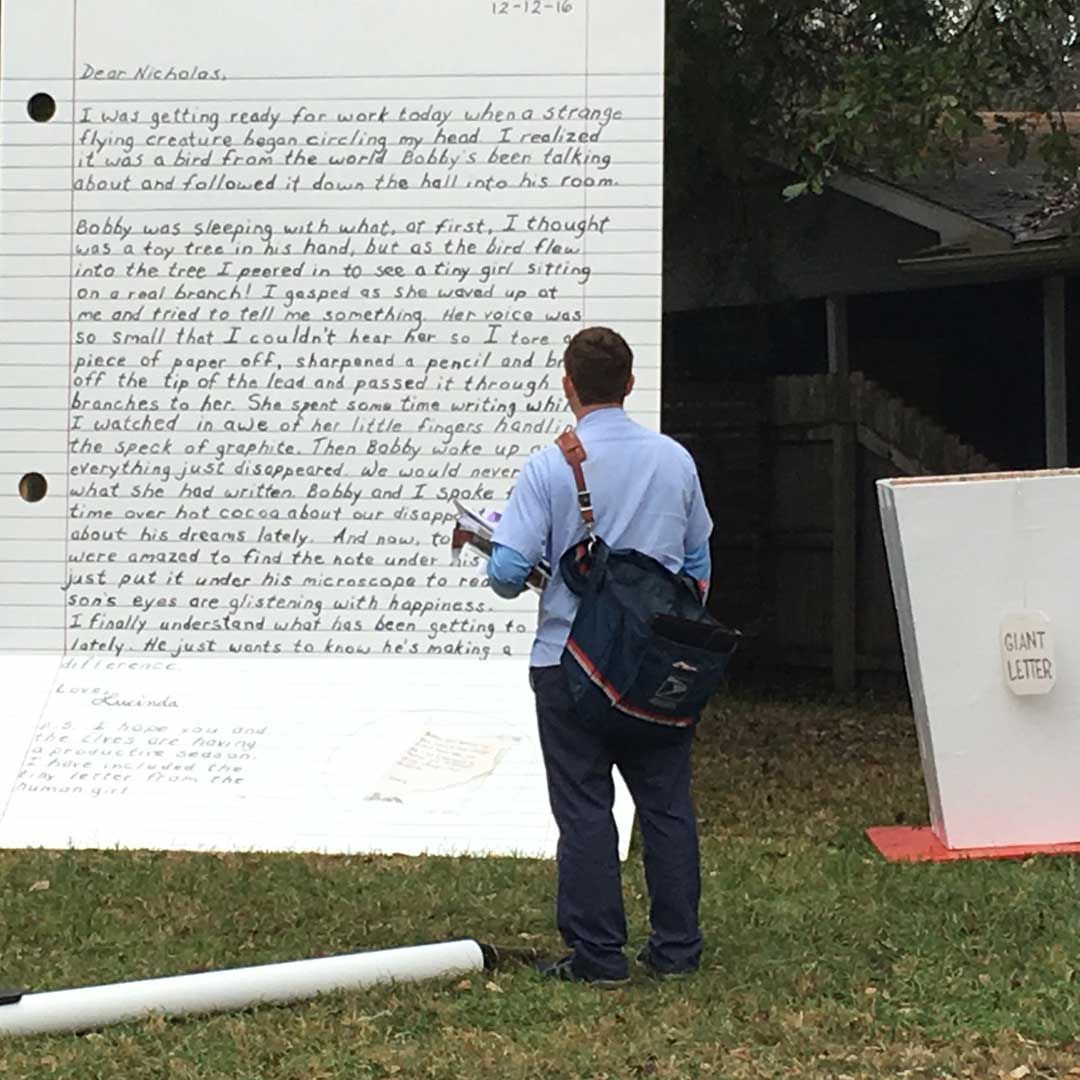 12-12-16
Dear Nicholas,
I was getting ready for work today when a strange
flying creature began circling my head. I realized
it was a bird from the world Bobby's been talking
about and followed it down the hall into his room.
Bobby was sleeping with what, at first, I thought
was a toy tree in his hand, but as the bird flew
into the tree I peered in to see a tiny girl sitting
on a real branch! I gasped as she waved up at
me and tried to tell me something. Her voice was
so small that I couldn't hear her so I tore a
piece of paper off, sharpened a pencil and br
off the tip of the lead and passed it through
branches to her. She spent some time writing whi
I watched in awe of her little fingers handlin
the speck of graphite. Then Bobby woke up
everything just disappeared. We would never
what she had written. Bobby and I spoke
time over hot cocoa about our disapp
about his dreams lately. And now, to
were amazed to find the note under his
just put it under his microscope to rea
son's eyes are glistening with happiness.
I finally understand what has been getting to
lately. He just wants to know he's making a
difference.
Love,
Lucinda
P.S. I hope you and
the elves are having
a productive season.
I have included the
tiny letter from the
human girl
GIANT
LETTER